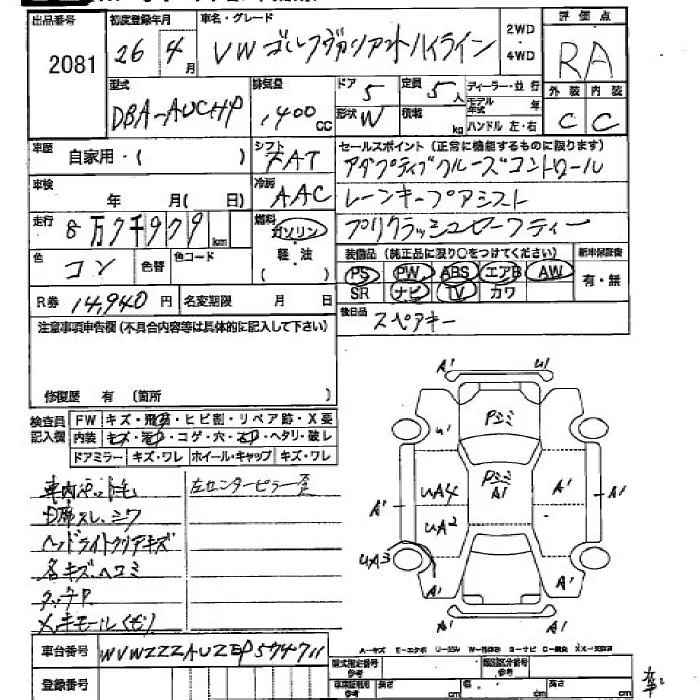 出品番号 初度登録年月 車名・グレード 2WD・4WD 評価点
2081 26年4月 VW ゴルフヴァリアントハイライン RA
型式 排気量 ドア 5 定員 5人 ディーラー・並行 外装 内装
DBA-AUCHP 1400cc 形状 W 積載 kg モデル年式 年 ハンドル 左・右 C C
車歴 自家用・( ) シフト FAT セールスポイント(正常に機能するものに限ります)
アダプティブクルーズコントロール
車検 年 月( 日) 冷房 AAC レーンキープアシスト
走行 8万7千979km 燃料 ガソリン・軽・油( ) プリクラッシュセーフティー
色 コン 色替 色コード 装備品(純正品に限り○をつけてください) 新車保証書
PS PW ABS エアB AW 有・無
R券 14,940円 名変期限 月 日 SR ナビ TV カワ
注意事項申告欄(不具合内容等は具体的に記入して下さい) 後日品 スペアキー
修復歴 有(箇所 )
検査員記入欄 FW キズ・飛石・ヒビ割・リペア跡・X要
内装 キズ・汚・コゲ・穴・・ヘタリ・破レ
ドアミラー キズ・ワレ ホイール・キャップ キズ・ワレ
左センターピラー歪
スレ、シワ
ヘッドライトクリアキズ
各キズ・ヘコミ
タッチP
メッキモールくもり
A' U1
Pミミ
U'
Pミミ
A1
UA4
A' A' A'
UA2
UA3
A' A'
A' A'
A-キズ E-エクボ
車台番号 WVWZZZAUZEP574711
登録番号 型式指定番号 類別区分番号
参考 参考
長さ cm 幅 cm 高さ cm